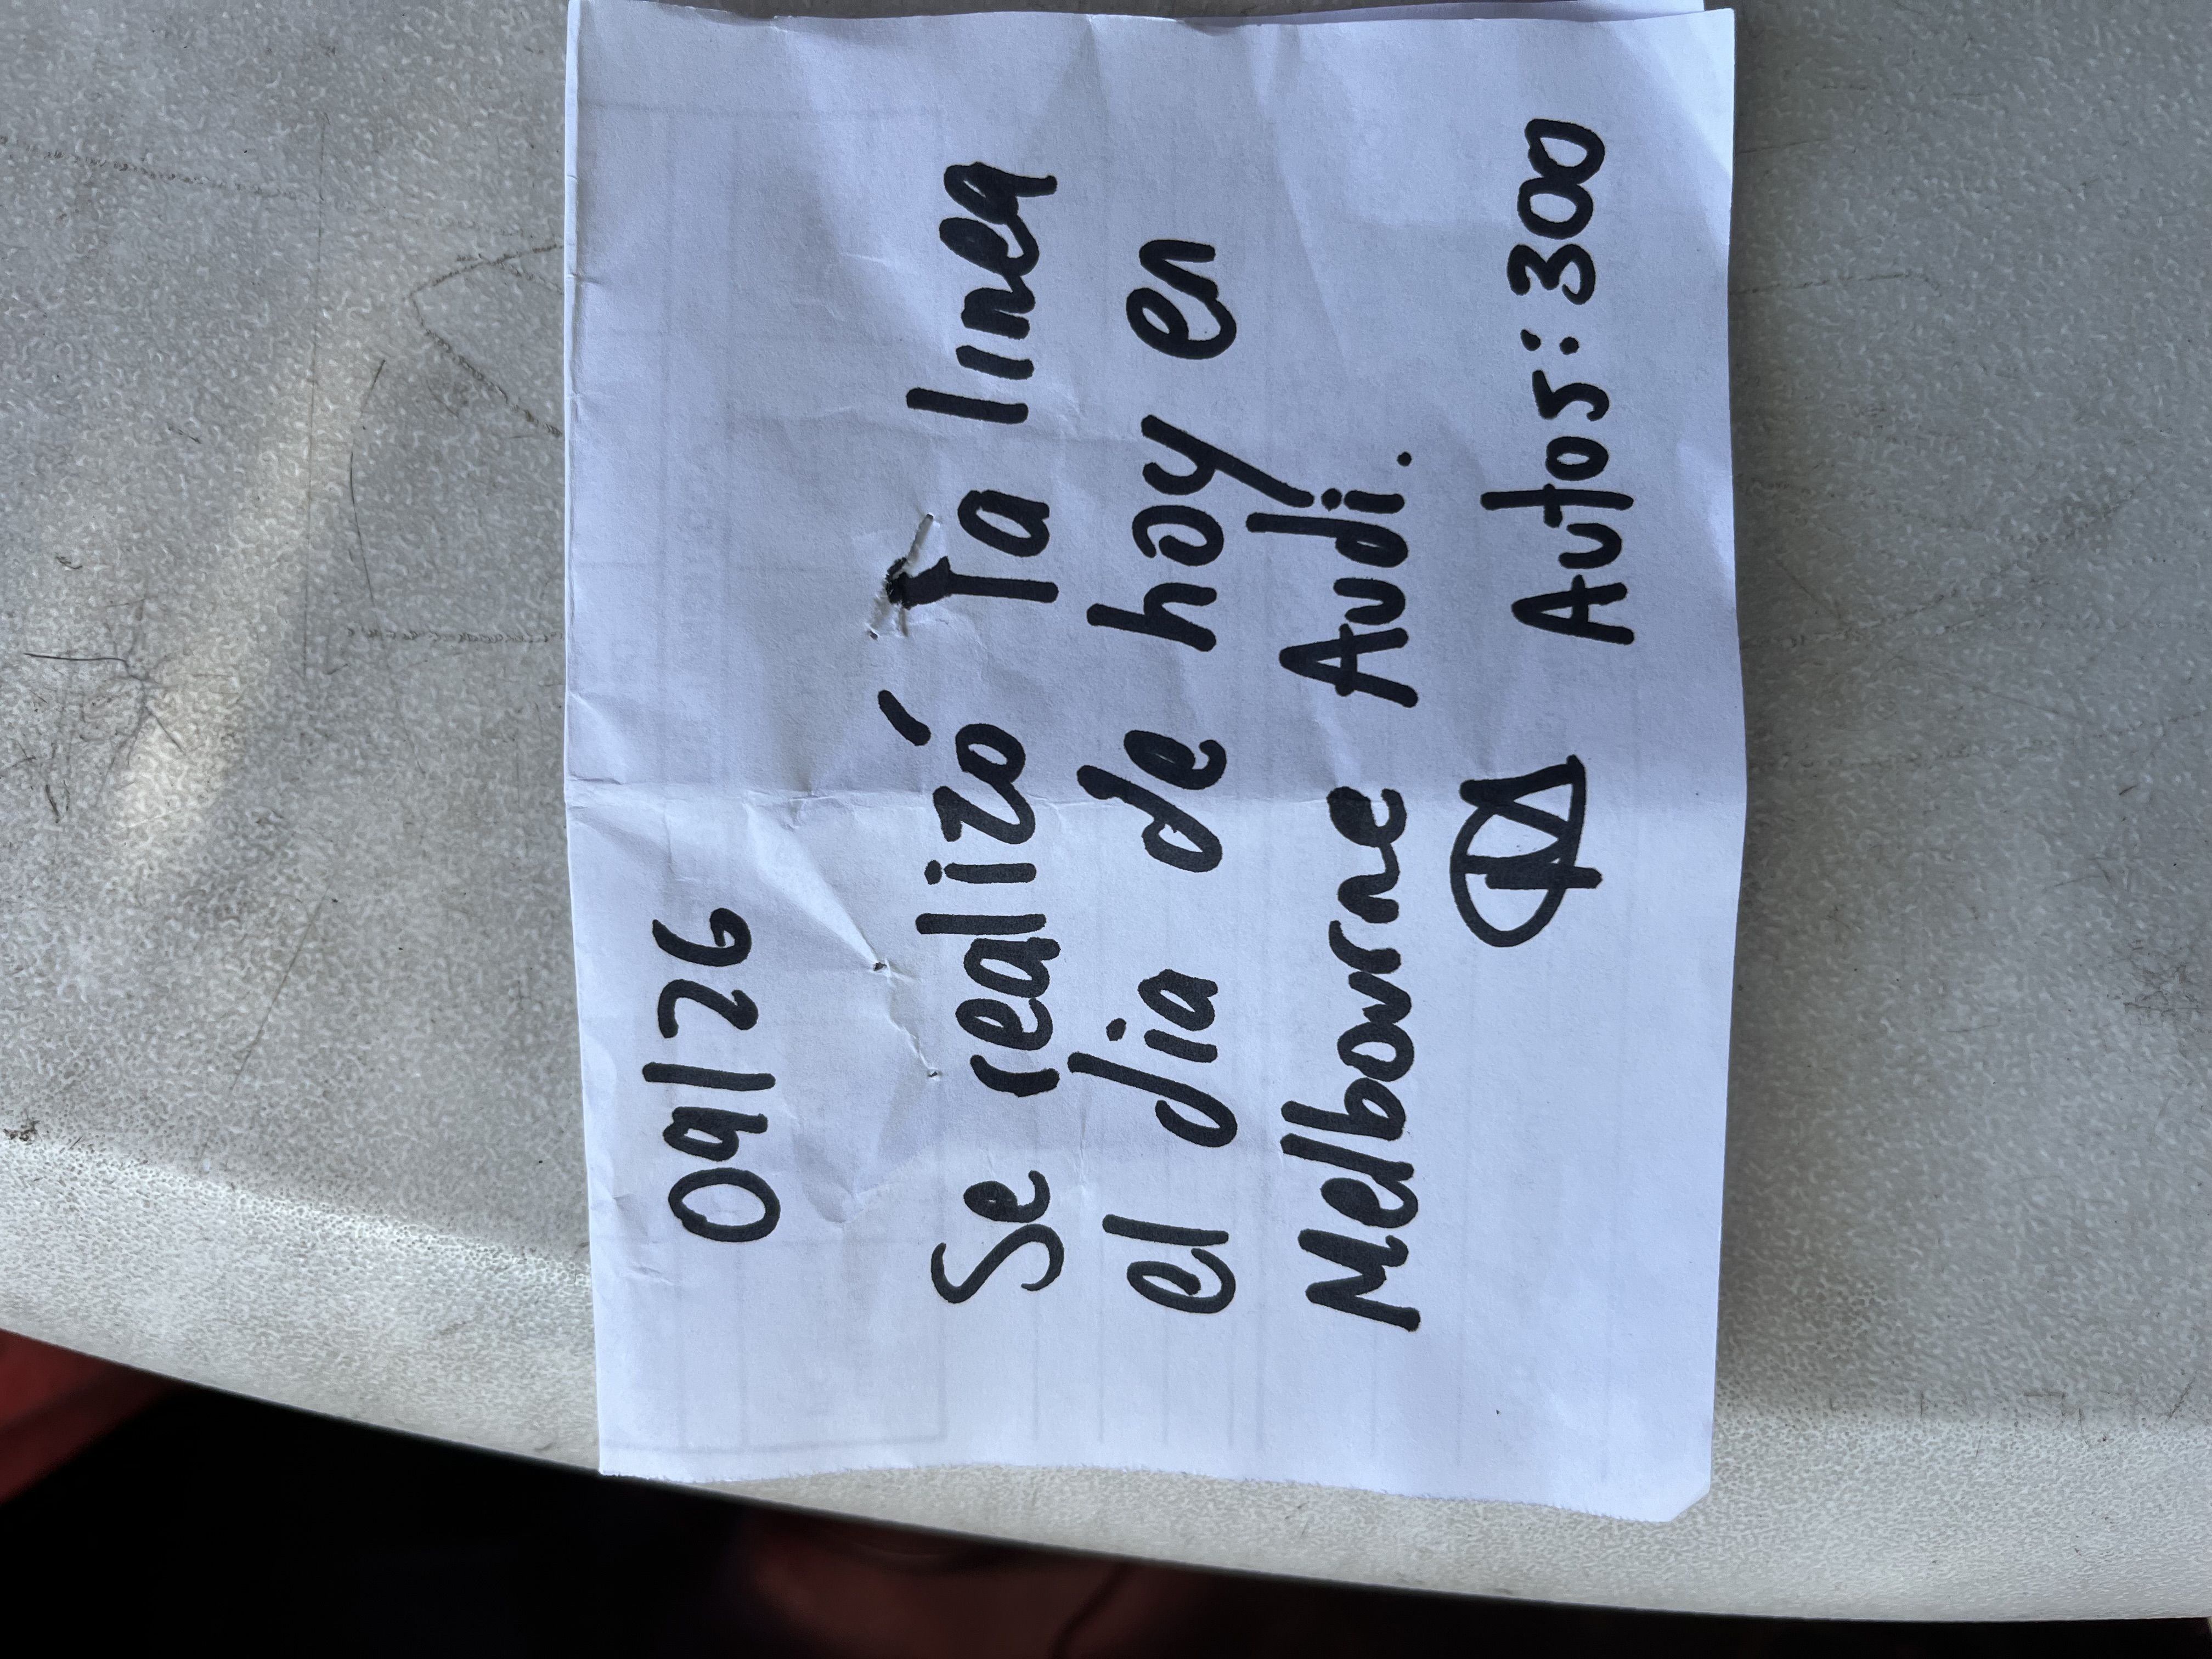 09/26
Se realizó la linea
el dia de hoy en
Melbourne Audi.
Autos: 300